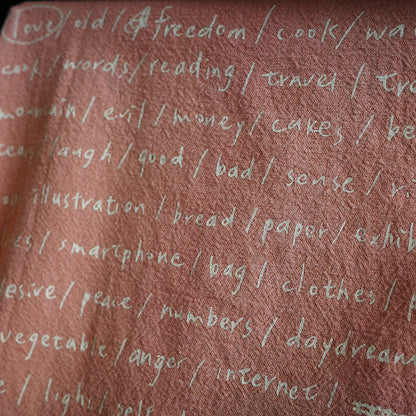 love / old / freedom / cook / wa
cook / words / reading / travel / tre
mountain / evil / money / cakes / be
laugh / good / bad / sense /
illustration / bread / paper / exhib
es / smartphone / bag / clothes /
esire / peace / numbers / daydream
vegetable / anger / internet /
e / light / self